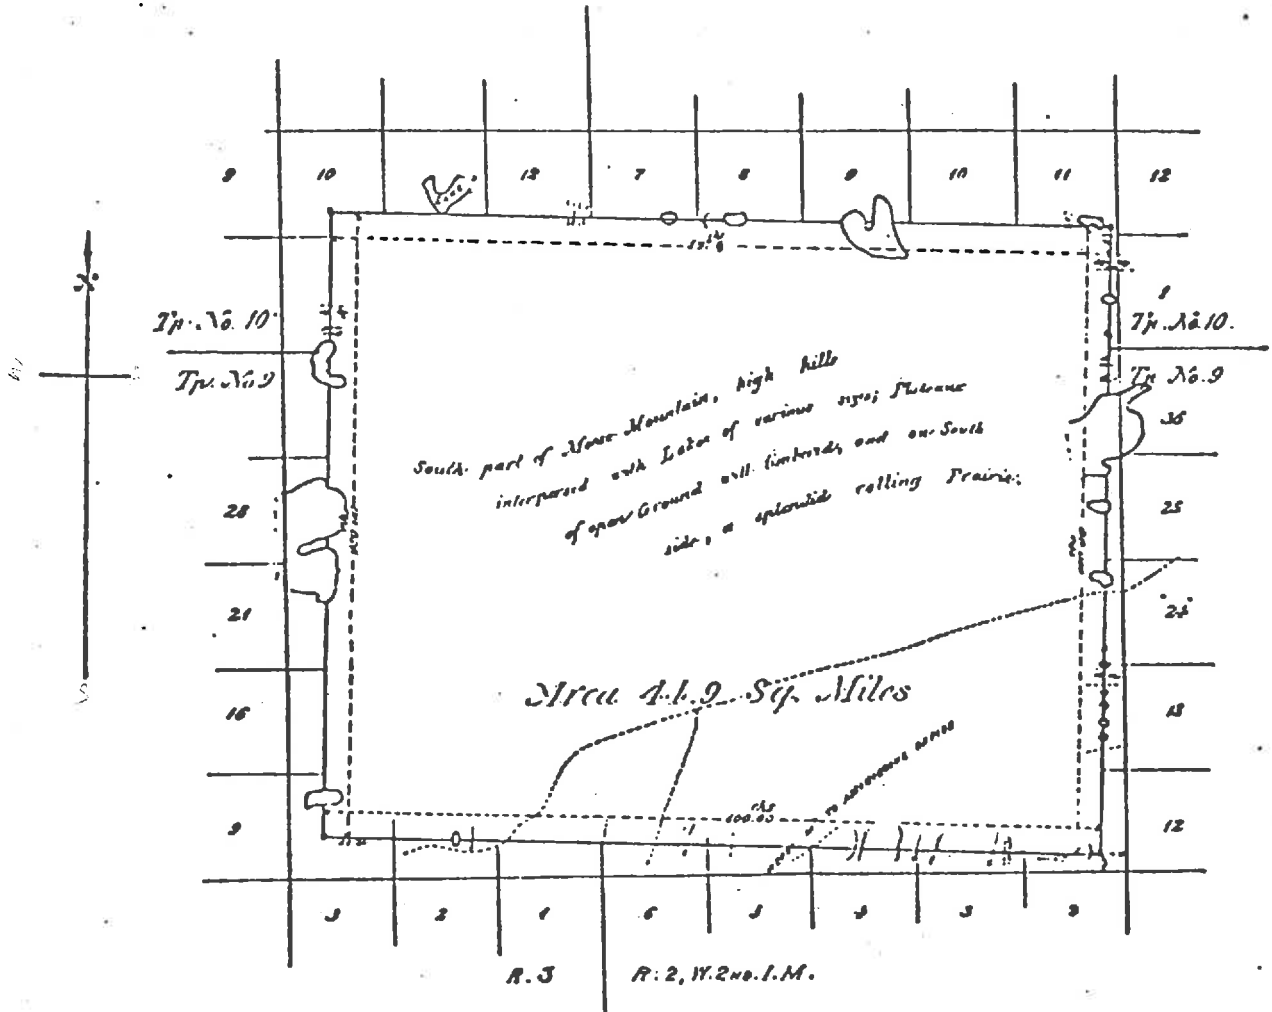 9 10 12 7 8 9 10 11 12
Tp. No. 10
Tp. No. 9
8
Tp. No. 10.
Tp. No. 9
36
South part of Moose Mountain, high hills
interpersed with Lakes of various sizes; Plateaux
of open Ground well timbered, and on South
side, a splendid rolling Prairie.
28
25
21
24
Area 41.9 Sq. Miles
16
13
9
12
3 2 1 6 5 4 3 2
R. 3 R. 2, W. 2ND. I. M.
S